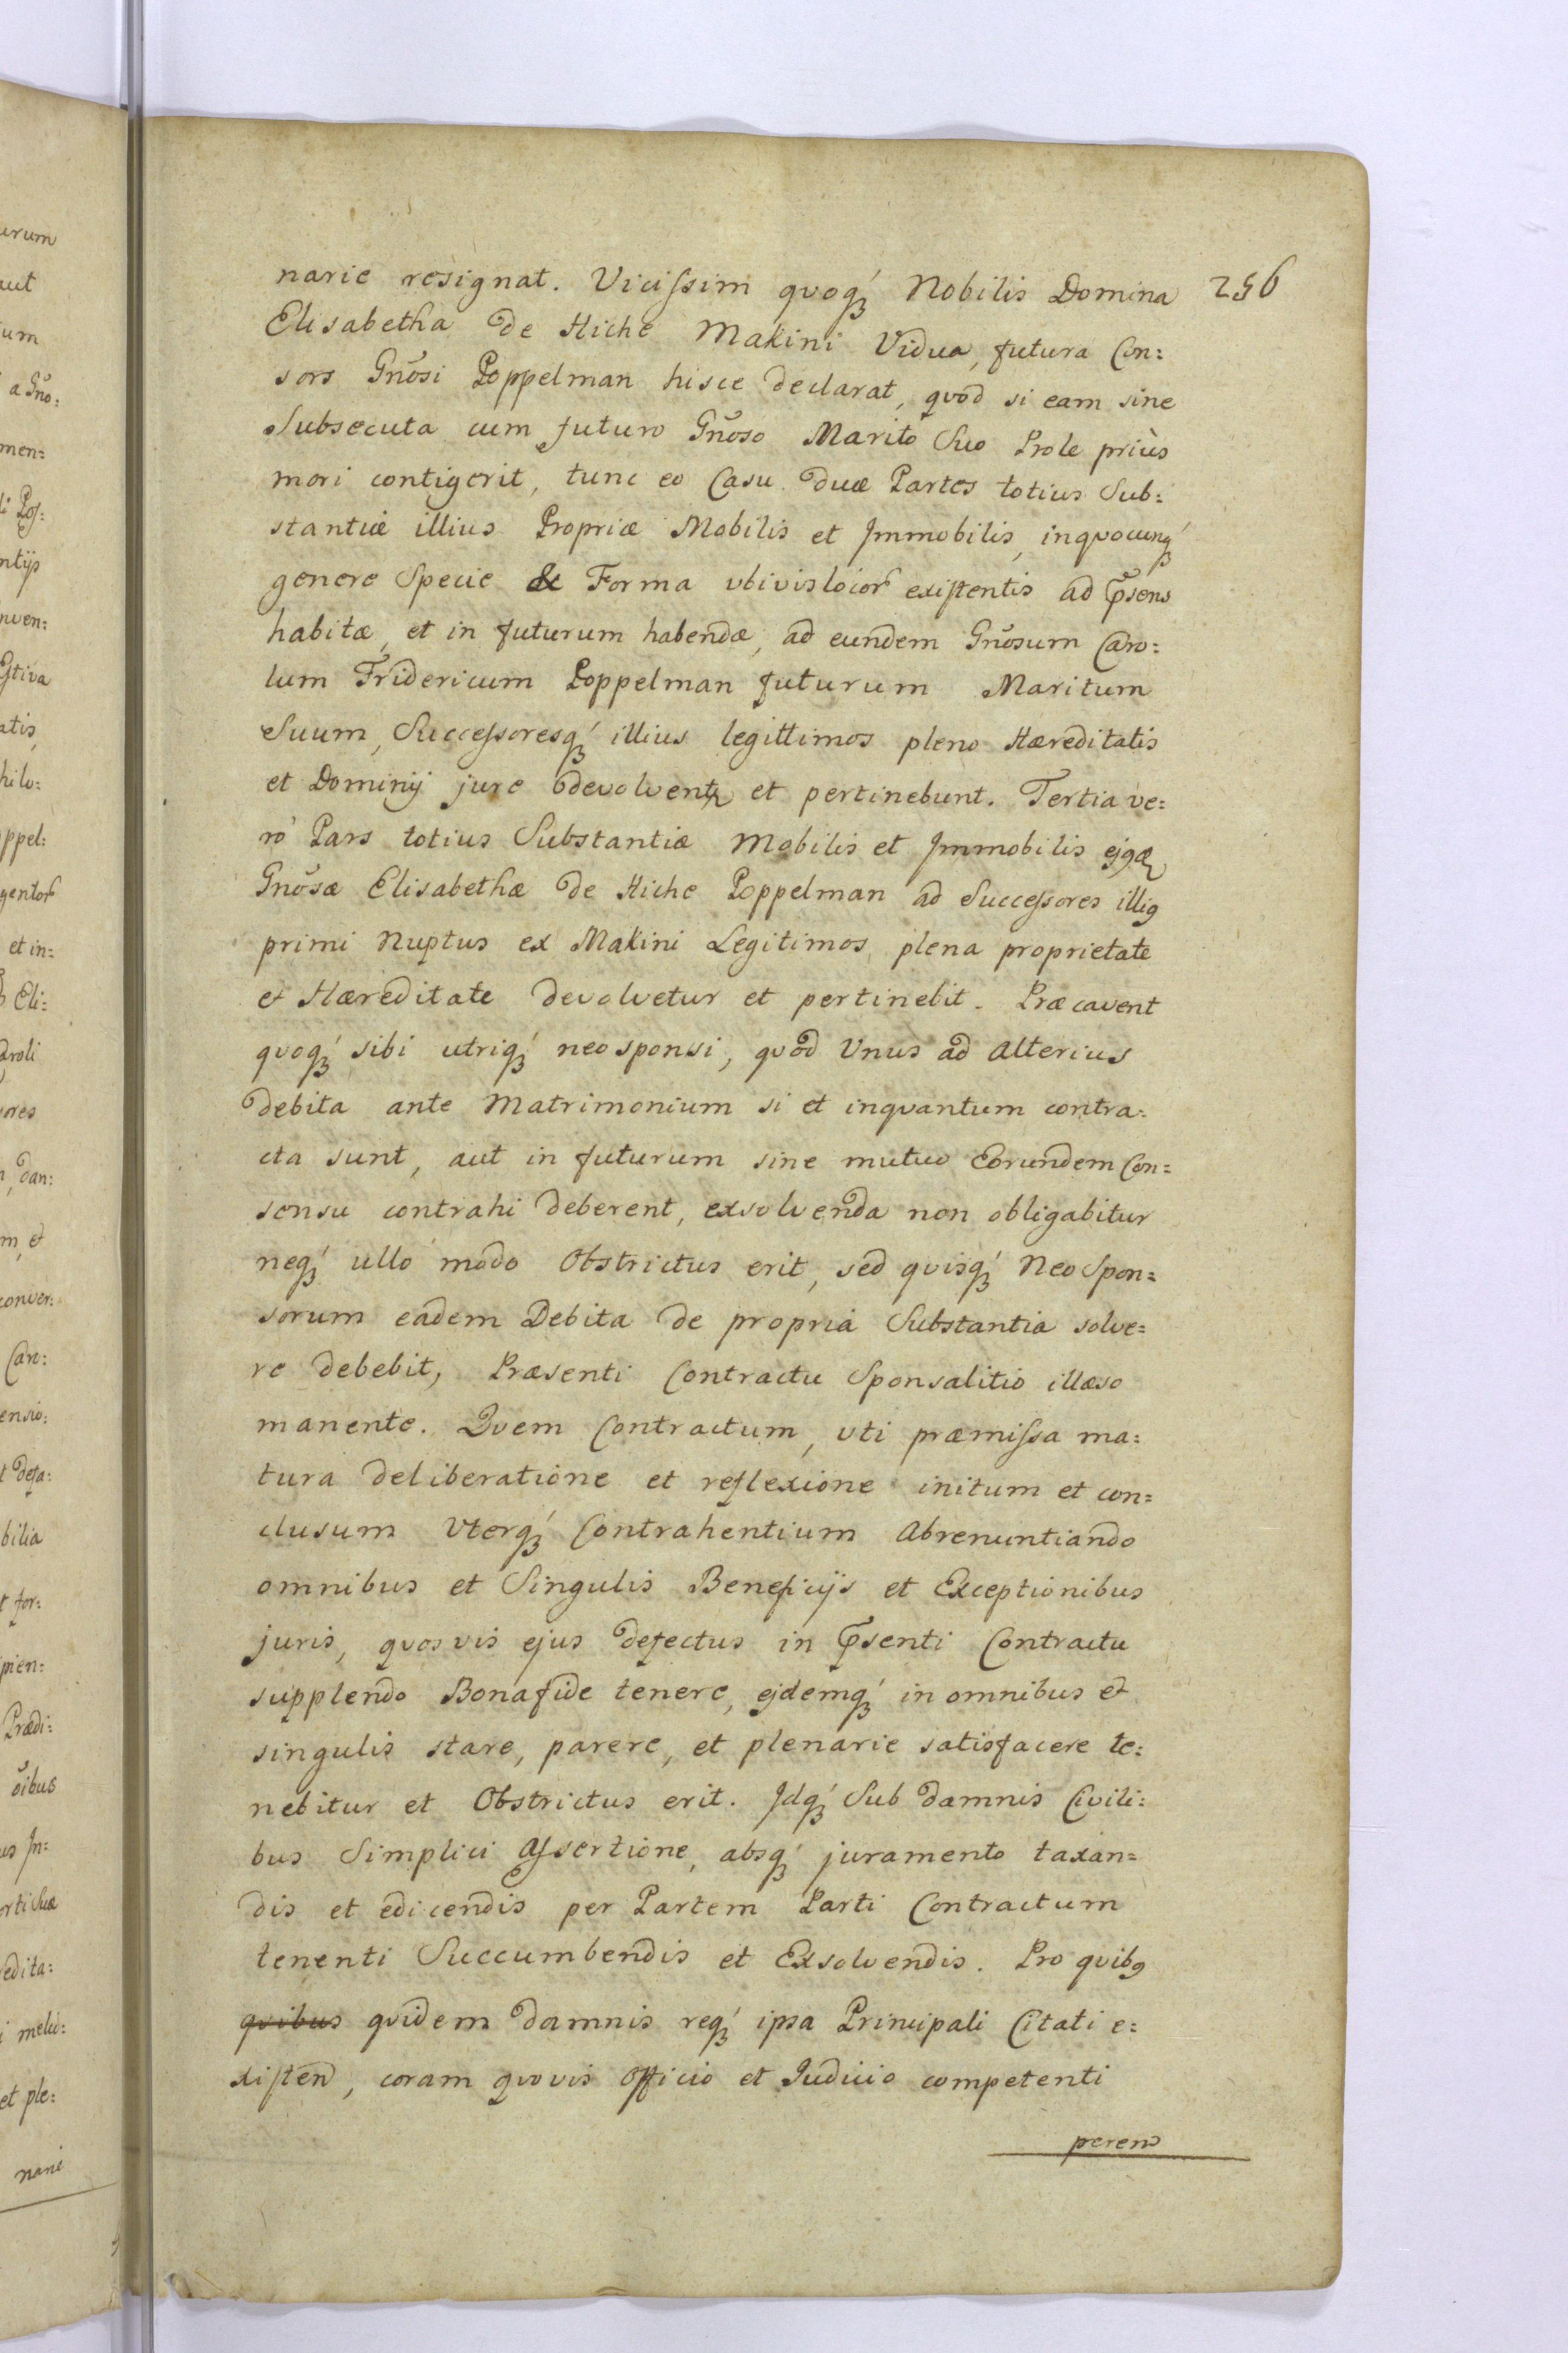 narie resignat. Vicissim quoq́ Nobilis Domina 256
Elisabetha de Hiche Makini Vidua, futura Con:
sors Gnõsi Poppelman hisce declarat, quod si eam sine
Subsecuta cum futuro Gnõso Marito Suo Prole priùs
mori contigerit, tunc eo Casu duæ Partes totius Sub:
stantiæ illius Propriæ Mobilis et Immobilis, inquocunq́
genere Specie & Forma ubivislocor existentis ad Psens
habitæ, et in futurum habendæ, ad eundem Gnõsum Caro:
lum Fridericum Poppelman futurum Maritum
Suum, Successoresq́ illius legittimos pleno Hæreditatis
et Dominij jure devolventr et pertinebunt. Tertia ve:
rò Pars totius Substantiæ Mobilis et Immobilis
Gnõsæ Elisabethæ de Hiche Poppelman ad Successores illig
primi Nuptus ex Makini Legitimos, plena proprietate
et Hæreditate devolvetur et pertinebit. Præcavent
quoq́ sibi utriq́ neosponsi, quod Unus ad Alterius
debita ante Matrimonium si et inquantum contra:
cta sunt, aut in futurum sine mutuo Eorundem Con=
sensu contrahi deberent, exsolvenda non obligabitur
neq́ ullo modo Obstrictus erit, sed quisq́ NeoSpon=
sorum eadem Debita de propria Substantia solve=
re debebit, Præsenti Contractu Sponsalitio illæso
manente. Quem Contractum, uti præmissa ma:
tura deliberatione et reflexione initum et con=
clusum Uterq́ Contrahentium Abrenuntiando
omnibus et Singulis Beneficijs et Exceptionibus
juris, quosvis ejus defectus in Psenti Contractu
supplendo Bonafide tenere, ejdemq́ in omnibus et
singulis stare, parere, et plenarie satisfacere te:
nebitur et Obstrictus erit. Idq́ Sub damnis Civili:
bus Simplici Assertione, absq́ juramento taxan=
dis et edicendis per Partem Parti Contractum
tenenti Succumbendis et Exsolvendis. Pro quibg
quibus quidem damnis req́ ipsa Principali Citati e:
xisten, coram quovis Officio et Iudicio competenti
peren
urum
aut
um
a Gno:
men:
li Pos:
ntijs
nven:
Estiva
atis,
hilo:
ppel:
gentor
et in:
Eli:
aroli
ores
dan:
m, et
conver:
Caro:
ensio:
t defa:
bilia
t for:
pien:
Prædi:
oibus
us In:
orti Suæ
edita:
i melio:
et ple:
narie